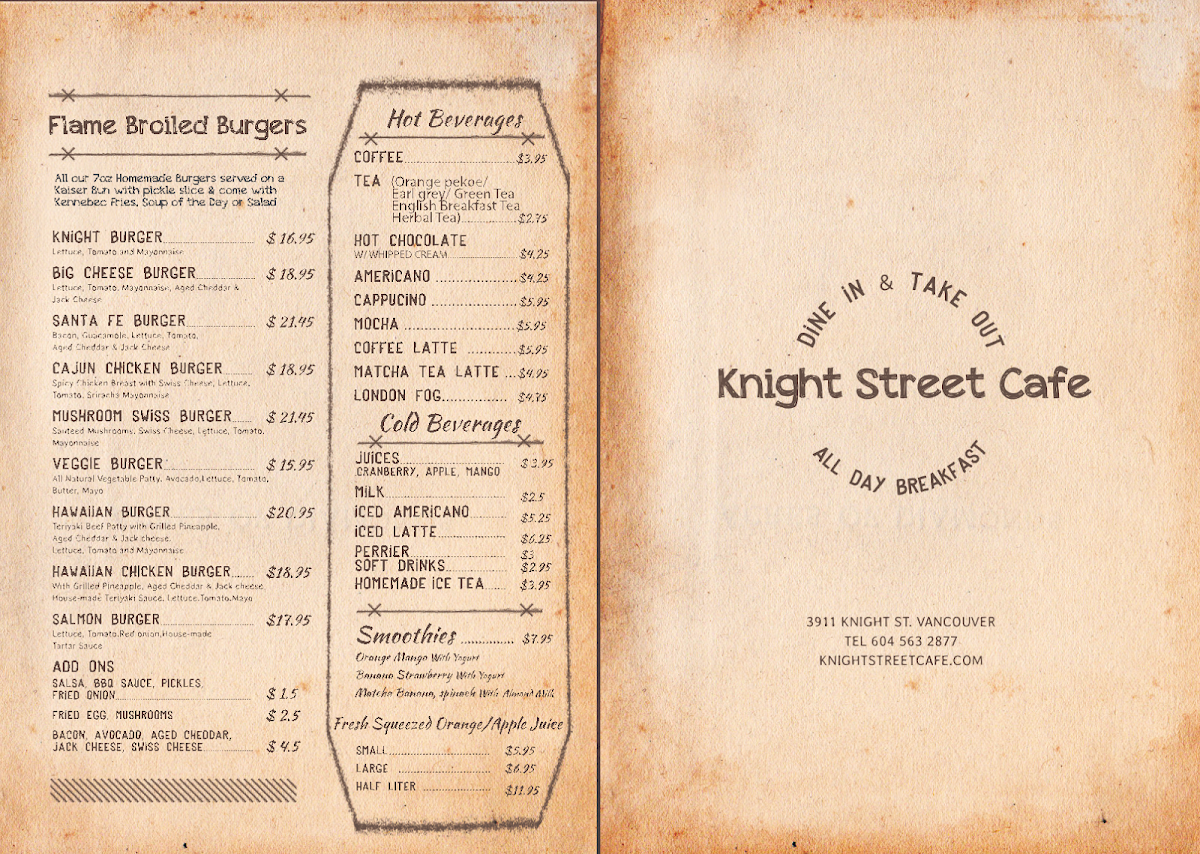 Flame Broiled Burgers
All our 7oz Homemade Burgers served on a
Kaiser Bun with pickle slice & come with
Kennebec Fries, Soup of the Day or Salad
KNIGHT BURGER $ 16.95
Lettuce, Tomato and Mayonnaise
BIG CHEESE BURGER $ 18.95
Lettuce, Tomato, Mayonnaise, Aged Cheddar &
Jack Cheese
SANTA FE BURGER $ 21.45
Bacon, Guacamole, Lettuce, Tomato,
Aged Cheddar & Jack Cheese
CAJUN CHICKEN BURGER $ 18.95
Spicy Chicken Breast with Swiss Cheese, Lettuce,
Tomato, Sriracha Mayonnaise
MUSHROOM SWISS BURGER $ 21.45
Sauteed Mushrooms, Swiss Cheese, Lettuce, Tomato,
Mayonnaise
VEGGIE BURGER $ 15.95
All Natural Vegetable Patty, Avocado,Lettuce, Tomato,
Butter, Mayo
HAWAIIAN BURGER $20.95
Teriyaki Beef Patty with Grilled Pineapple,
Aged Cheddar & Jack cheese,
Lettuce, Tomato and Mayonnaise
HAWAIIAN CHICKEN BURGER $18.95
With Grilled Pineapple, Aged Cheddar & Jack cheese,
House-made Teriyaki Sauce, Lettuce,Tomato,Mayo
SALMON BURGER $17.95
Lettuce, Tomato,Red onion,House-made
Tartar Sauce
ADD ONS
SALSA, BBQ SAUCE, PICKLES,
FRIED ONION $ 1.5
FRIED EGG, MUSHROOMS $ 2.5
BACON, AVOCADO, AGED CHEDDAR,
JACK CHEESE, SWISS CHEESE $ 4.5
Hot Beverages
COFFEE $3.95
TEA (Orange pekoe/
Earl grey/ Green Tea
English Breakfast Tea
Herbal Tea) $2.75
HOT CHOCOLATE
W/ WHIPPED CREAM $4.25
AMERICANO $4.25
CAPPUCINO $5.95
MOCHA $5.95
COFFEE LATTE $5.95
MATCHA TEA LATTE $4.95
LONDON FOG $4.75
Cold Beverages
JUICES $ 3.95
CRANBERRY, APPLE, MANGO
MILK $2.5
ICED AMERICANO $5.25
ICED LATTE $6.25
PERRIER $3
SOFT DRINKS $2.95
HOMEMADE ICE TEA $3.95
Smoothies $7.95
Orange Mango With Yogurt
Banana Strawberry With Yogurt
Matcha Banana, spinach With Almond Milk
Fresh Squeezed Orange/Apple Juice
SMALL $5.95
LARGE $6.95
HALF LITER $11.95
DINE IN & TAKE OUT
Knight Street Cafe
ALL DAY BREAKFAST
3911 KNIGHT ST. VANCOUVER
TEL 604 563 2877
KNIGHTSTREETCAFE.COM